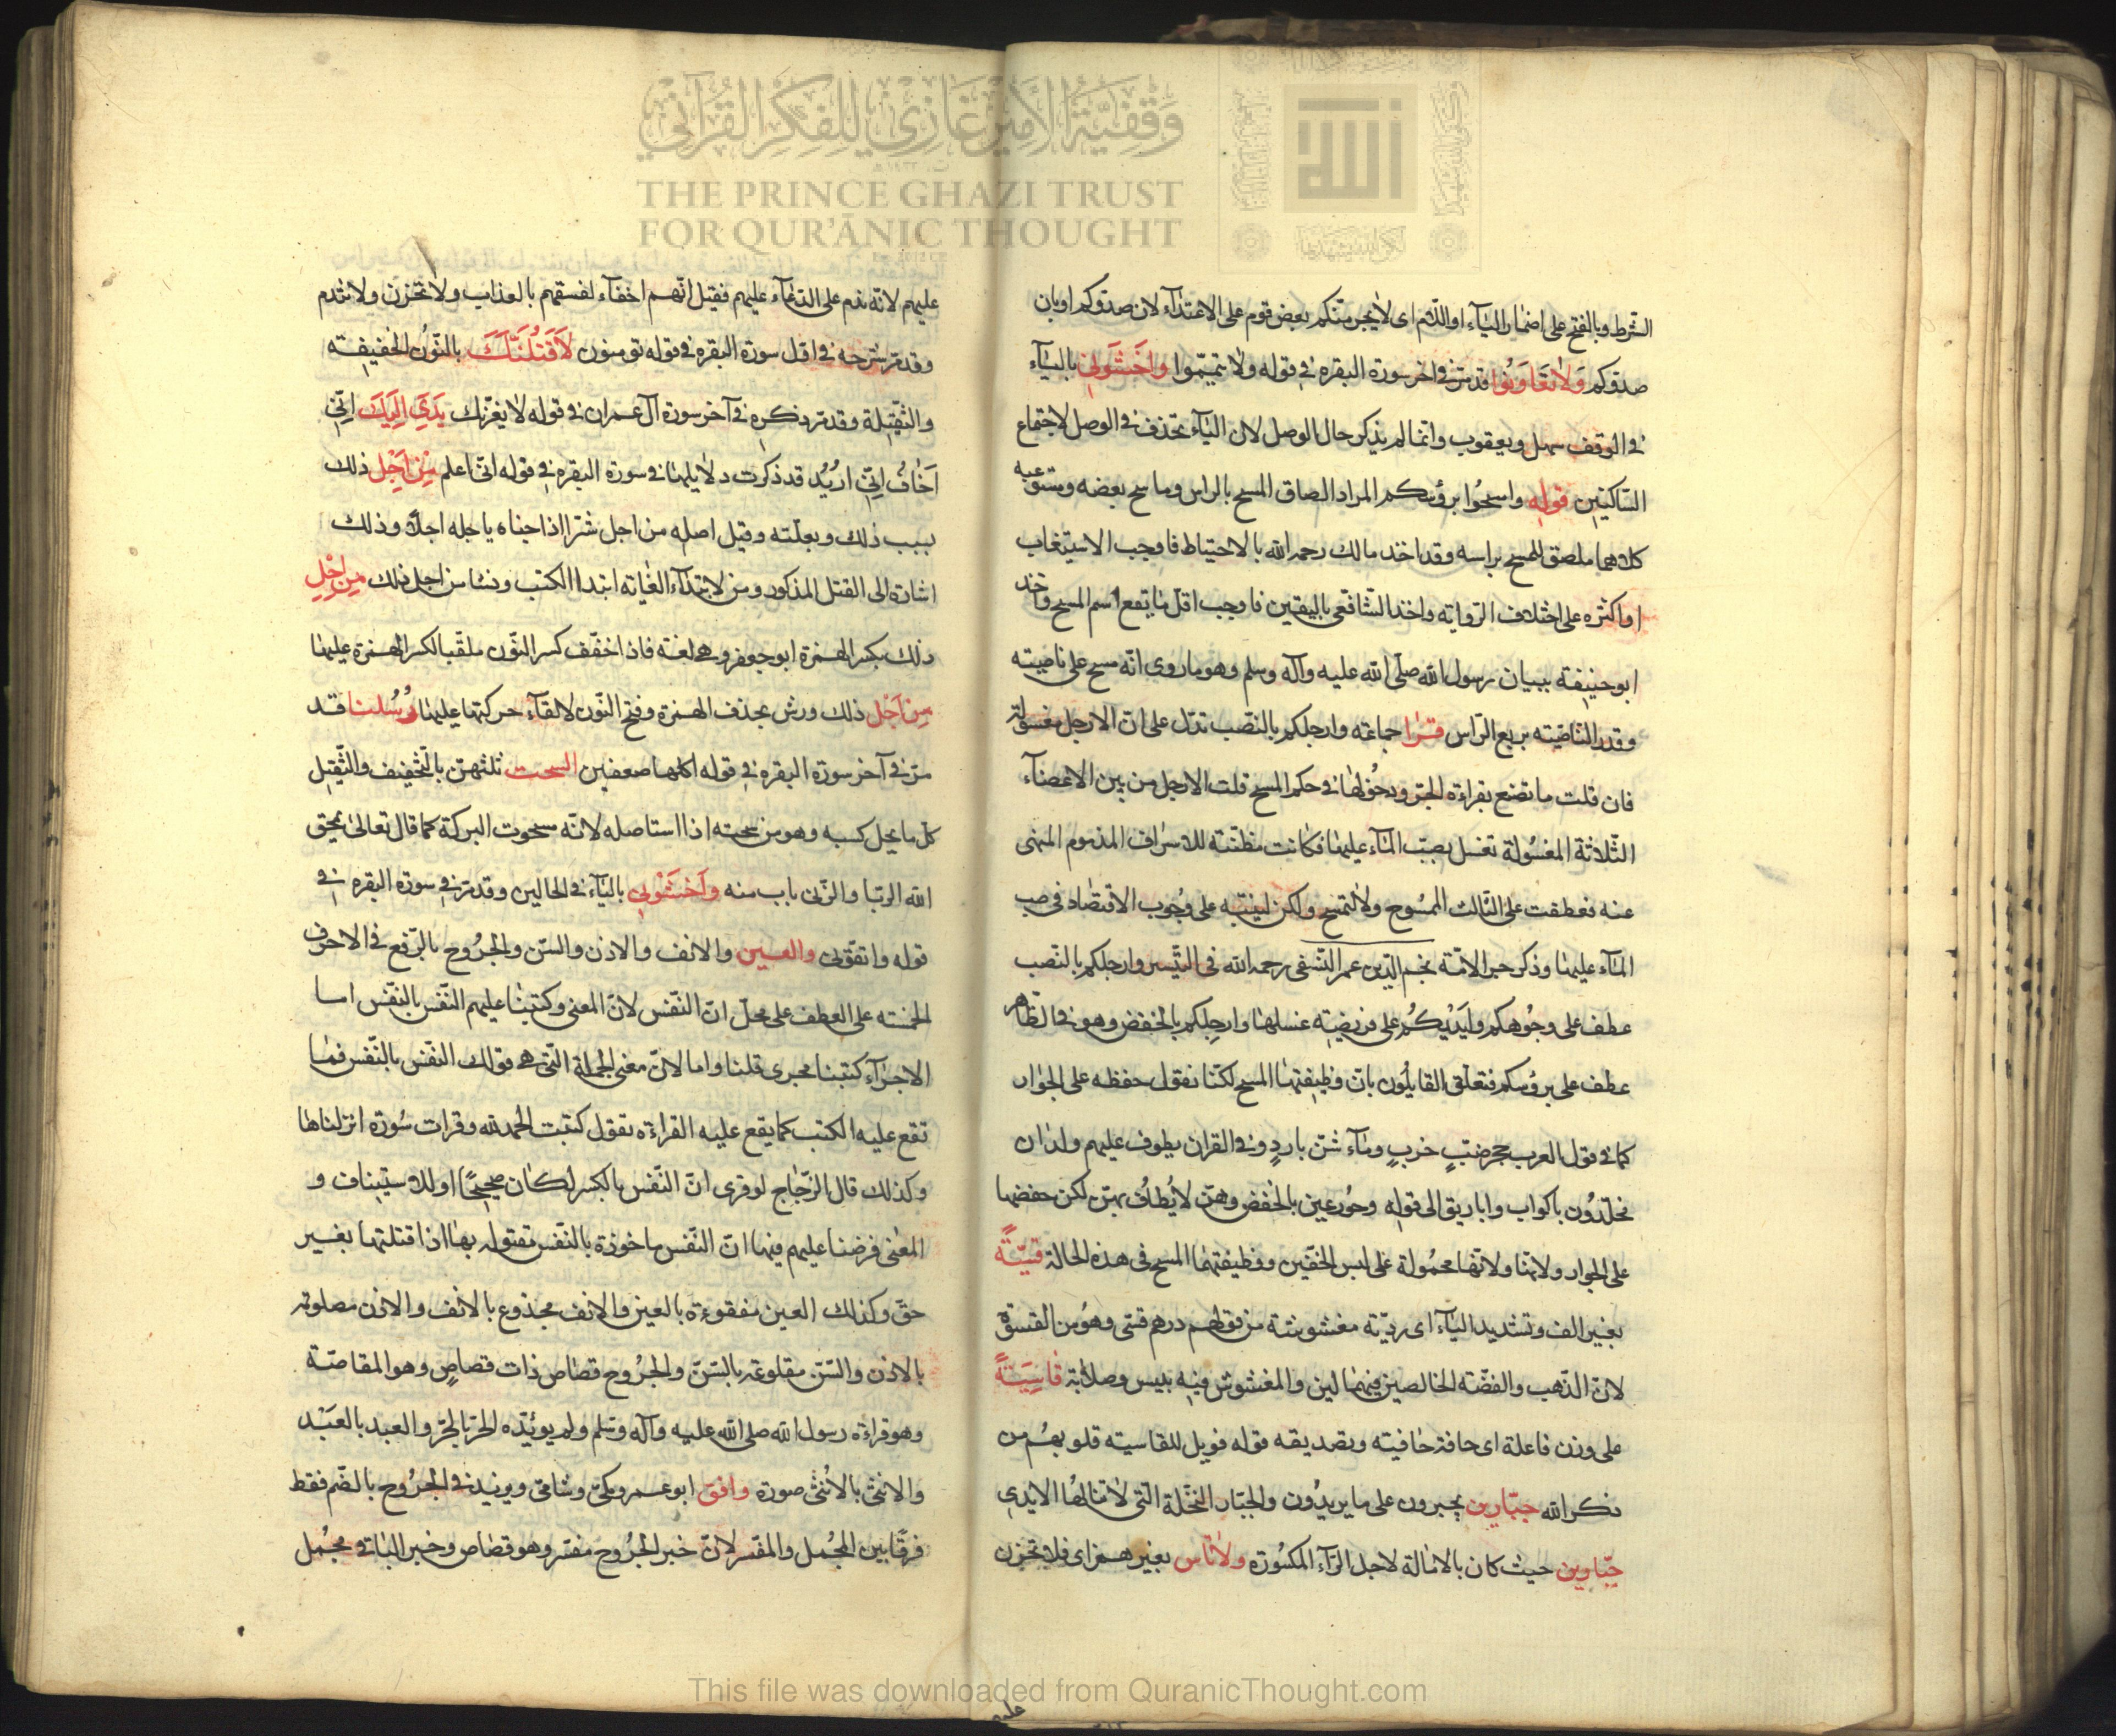 وقفية الأمير غازي للفكر القرآني
THE PRINCE GHAZI TRUST
FOR QUR'ĀNIC THOUGHT
الشرط وبالفتح على اضمار البآء او اللام اى لا يجرمنكم بعض قوم على الاعتدآء لان صدوكم او بان
صدوكم وَلَا تَعَاوَنُوا قد مر فى اخر سورة البقره فى قوله ولا تيمموا واخشوني باليآء
فى الوقف سهل ويعقوب وانما لم يذكر حال الوصل لان اليآء تحذف فى الوصل لاجتماع
السّاكنين قوله وامسحُوا برؤسكم المراد الصاق المسح بالراس وماسح بعضه ومستوعبه
كلاهما ملصق للمسح براسه وقد اخذ مالك رحمه الله بالاحتياط فاوجب الاستيعاب
او اكثره على اختلاف الرواية واخذ الشافعى باليقين فاوجب اقل ما يقع اسم المسح واخذ
ابو حنيفة ببيان رسول الله صلى الله عليه وآله وسلم وهو ما روى انه مسح على ناصيته
وقدر الناصية بربع الراس قرا جماعة وارجلكم بالنصب تدل على ان الارجل مغسولة
فان قلت ما تصنع بقراءة الجر ودخُولها فى حكم المسح قلت الارجل من بين الاعضآء
الثلاثة المغسُولة تغسل بصبّ المآء عليها فكانت مظنة للاسراف المذموم المنهى
عنه فعطفت على الثالث الممسُوح ولا لتمسح ولكن لينبه على وجُوب الاقتصاد فى صب
المآء عليها وذكر حبر الامة نجم الدين عمر النسفى رحمه الله فى التيسير وارجلكم بالنصب
عطف على وجُوهكم وايديكُم على فرضية غسلها وارجلِكم بالخفض وهو فى الظاهر
عطف على برؤسكم فتعلق القايلُون بان وظيفتها المسح لكنا نقول حفظه على الجوار
كما فى قول العرب جحر ضبٍ خربٍ ومآء شن باردٍ وفى القران يطوف عليهم ولدان
مخلدُون باكواب واباريق الى قوله وحُور عين بالخفض وهن لا يُطافُ بهن لكن خفضها
على الجوار ولانها محمُولة على لبس الخفين ووظيفتهما المسح فى هذه الحالة قسِيَّةً
بغير الف وتشديد اليآء اى رديّة مغشوشة من قولهم درهم قسى وهُو من القسوة
لان الذهب والفضة الخالصين فيهما لين والمغشوش فيه يبس وصلابة قَاسِيَةً
على وزن فاعلة اى جافة خافية وتصديقه قوله فويل للقاسية قلوبهُم من
ذكر الله جبّارين يجبرون على ما يريدُون والجبار النخلة التى لا تنالها الايدى
جبّارين حيث كان بالامالة لاجل الرآء المكسُورة ولا تاس بغير همز اى فلا تحزن
عليهم لانه ندم على الدعآء عليهم فقيل انهم احقآء لفسقهم بالعذاب ولا تحزن ولا تندم
وقد مر شرحه فى اول سورة البقره فى قوله يومنون لَاَقتُلَنَّكَ بالنّون الخفيفة
والثقيلة وقد مر ذكره فى آخر سورة آل عمران فى قوله لا يغرنك يَدِيَ اِلَيكَ اِنّى
اَخافُ اِنّى اريُد قد ذكرت دلايلها فى سورة البقره فى قوله انى اعلم مِن اَجْلِ ذلك
بسبب ذلك وبعلّته وقيل اصله من اجل شرا اذا جناه ياجله اجلا وذلك
اشارة الى القتل المذكور ومن لابتدآء الغاية ابتدا الكتب ونشا من اجل ذلك مِن اِجْلِ
ذلك بكسر الهمزة ابو جعفر وهى لغة فاذا خفّف كسر النّون ملقيا لكسر الهمزة عليها
مِن اَجْل ذلك ورش بحذف الهمزة وفتح النّون لالقآء حركتها عليها رُسُلنا قد
مر فى آخر سورة البقره فى قوله اكلها ضعفين السحت ثلثهن بالتخفيف والتّثقيل
كل ما يحل كسبه وهو من سحته اذا استاصله لانه مسحوت البركة كما قال تعالى يمحق
الله الربا والزنى باب منه واخشوني باليآء فى الحالين وقد مر فى سورة البقره فى
قوله واتقونى والعين والانف والاذن والسّن والجرُوح بالرفع فى الاحرف
الخمسه على العطف على محل ان النّفس لان المعنى وكتبنا عليهم النّفس بالنّفس اما
الاجرآء كتبنا مجرى قلنا واما لان معنى الجملة التى هى قولك النّفس بالنّفس مما
تقع عليه الكتب كما يقع عليه القراءة تقول كتبت الحمد لله وقرات سُورة انزلناها
وكذلك قال الزّجاج لو قرى ان النّفس بالكسر لكان صحيحًا او للاستيناف و
المعنى فرضنا عليهم فيها ان النّفس ماخوذة بالنّفس مقتوله بها اذا قتلتها بغير
حق وكذلك العين مفقوءة بالعين والانف مجذوع بالانف والاذن مصلومة
بالاذن والسّن مقلوعة بالسّن والجرُوح قصاص ذات قصاصٍ وهو المقاصّة
وهو قراءة رسول الله صلى الله عليه وآله وسلم ولم يويّده الحر بالحر والعبد بالعبد
والانثى بالانثى صورة وافق ابو عمرو ومكى وشامى ويزيد فى الجرُوح بالضم فقط
فرقًا بين المجُمل والمفسّر لان خبر الجرُوح مفسّر وهو قصاص وخبر الباقى مجُمل
عليهم
This file was downloaded from QuranicThought.com